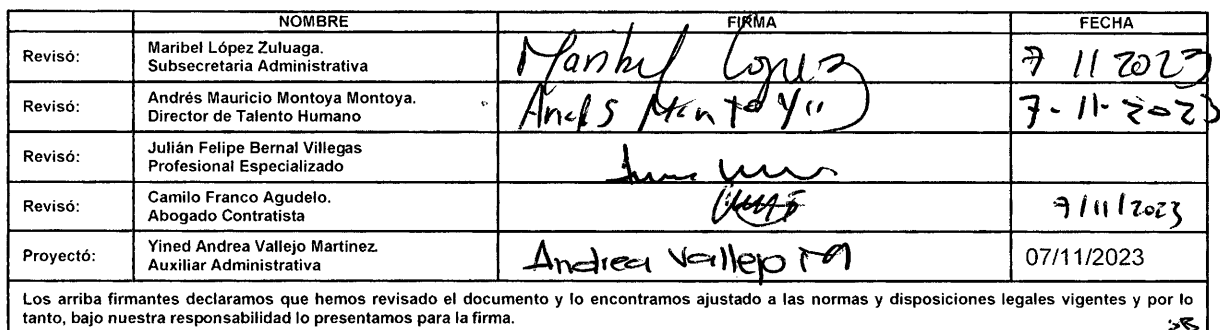 NOMBRE FIRMA FECHA
Revisó: Maribel López Zuluaga.
Subsecretaria Administrativa
Maribel López 7 11 2023
Revisó: Andrés Mauricio Montoya Montoya.
Director de Talento Humano
Andrés Montoya 7-11-2023
Revisó: Julián Felipe Bernal Villegas
Profesional Especializado
Revisó: Camilo Franco Agudelo.
Abogado Contratista
7/11/2023
Proyectó: Yined Andrea Vallejo Martinez.
Auxiliar Administrativa
Andrea Vallejo M 07/11/2023
Los arriba firmantes declaramos que hemos revisado el documento y lo encontramos ajustado a las normas y disposiciones legales vigentes y por lo
tanto, bajo nuestra responsabilidad lo presentamos para la firma.